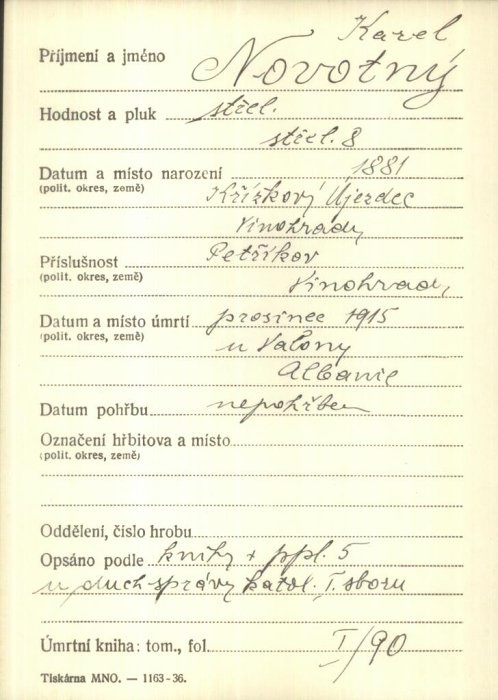 Karel
Příjmení a jméno Novotný
Hodnost a pluk střel.
střel. 8
Datum a místo narození 1881
(polit. okres, země) Křížkový Újezdec
Vinohrady
Příslušnost Petříkov
(polit. okres, země) Vinohrady
Datum a místo úmrtí prosinec 1915
(polit. okres, země) u Valony
Albanie
Datum pohřbu nepohřben
Označení hřbitova a místo
(polit. okres, země)
Oddělení, číslo hrobu
Opsáno podle knihy + ppl. 5
u duch správy katol. I. sboru
Úmrtní kniha: tom., fol. I/90
Tiskárna MNO. — 1163-36.